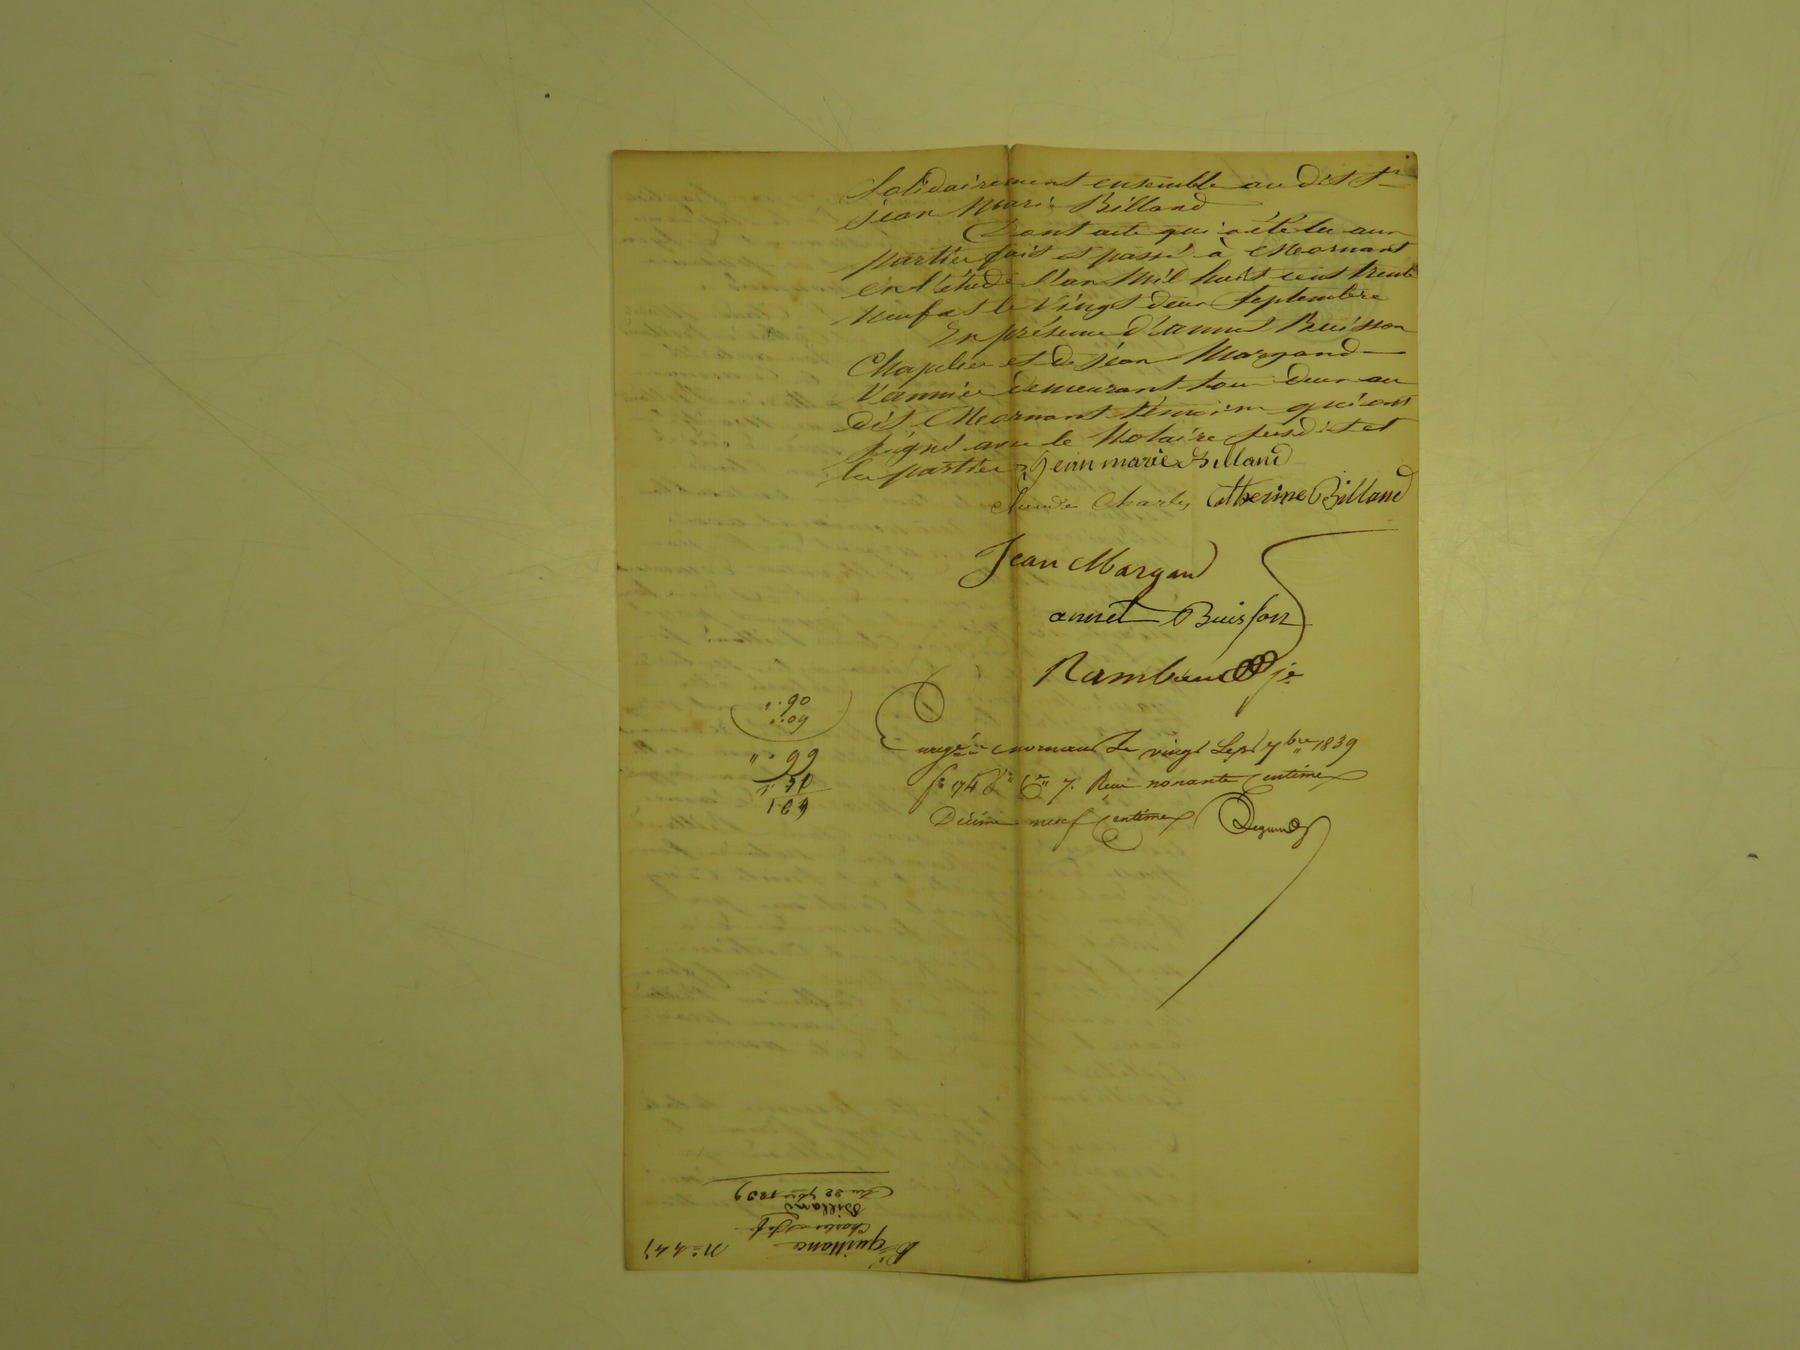 Solidairement ensemble au dit Sr
Jean Marie Billand
Dont acte qui a été lu aux
parties fait et passé à Mornant
en l'étude l'an mil huit cent trente
neuf et le vingt deux Septembre
En présence d'annet Buisson
Chapelier et de Jean Margand
Vannier demeurant tous deux au
dit Mornant témoins qui ont
signé avec le Notaire susdit et
les parties Jean marie Billand
Claude Charles Catherine Billand
Jean Margand
annet Buisson
Rambaud je
" .90
" .09
" .99
1.09
Enregé à mornant Le vingt Sept 7bre 1839
fo 174 Ro Co 7. Reçu nonante Centimes
Décime neuf Centimes
Quittance
Charles
Billand
Du 22 7bre 1839